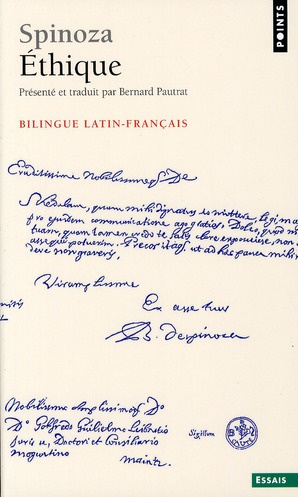 Spinoza
Éthique
Présenté et traduit par Bernard Pautrat
BILINGUE LATIN-FRANÇAIS
POINTS
Eruditissime Nobilissimeq;
Schedulam, quam mihi dignatus es mittere, legi
pro ejusdem communicatione ago gratias. Doleo, quod
tuam, quam tamen credo te satis clare exposuisse, non
assequi potuerim. Precor itaq; ut ad haec pauca mihi
Vir amplissime
Ex asse tuus
B. Despinoza
Nobilissimo Amplissimoq; D°
D° Gotfredo Guilielmo Leibnitio
Juris u. Doctori et Consiliario
Moguntino
Maintz
Sigillum
ESSAIS